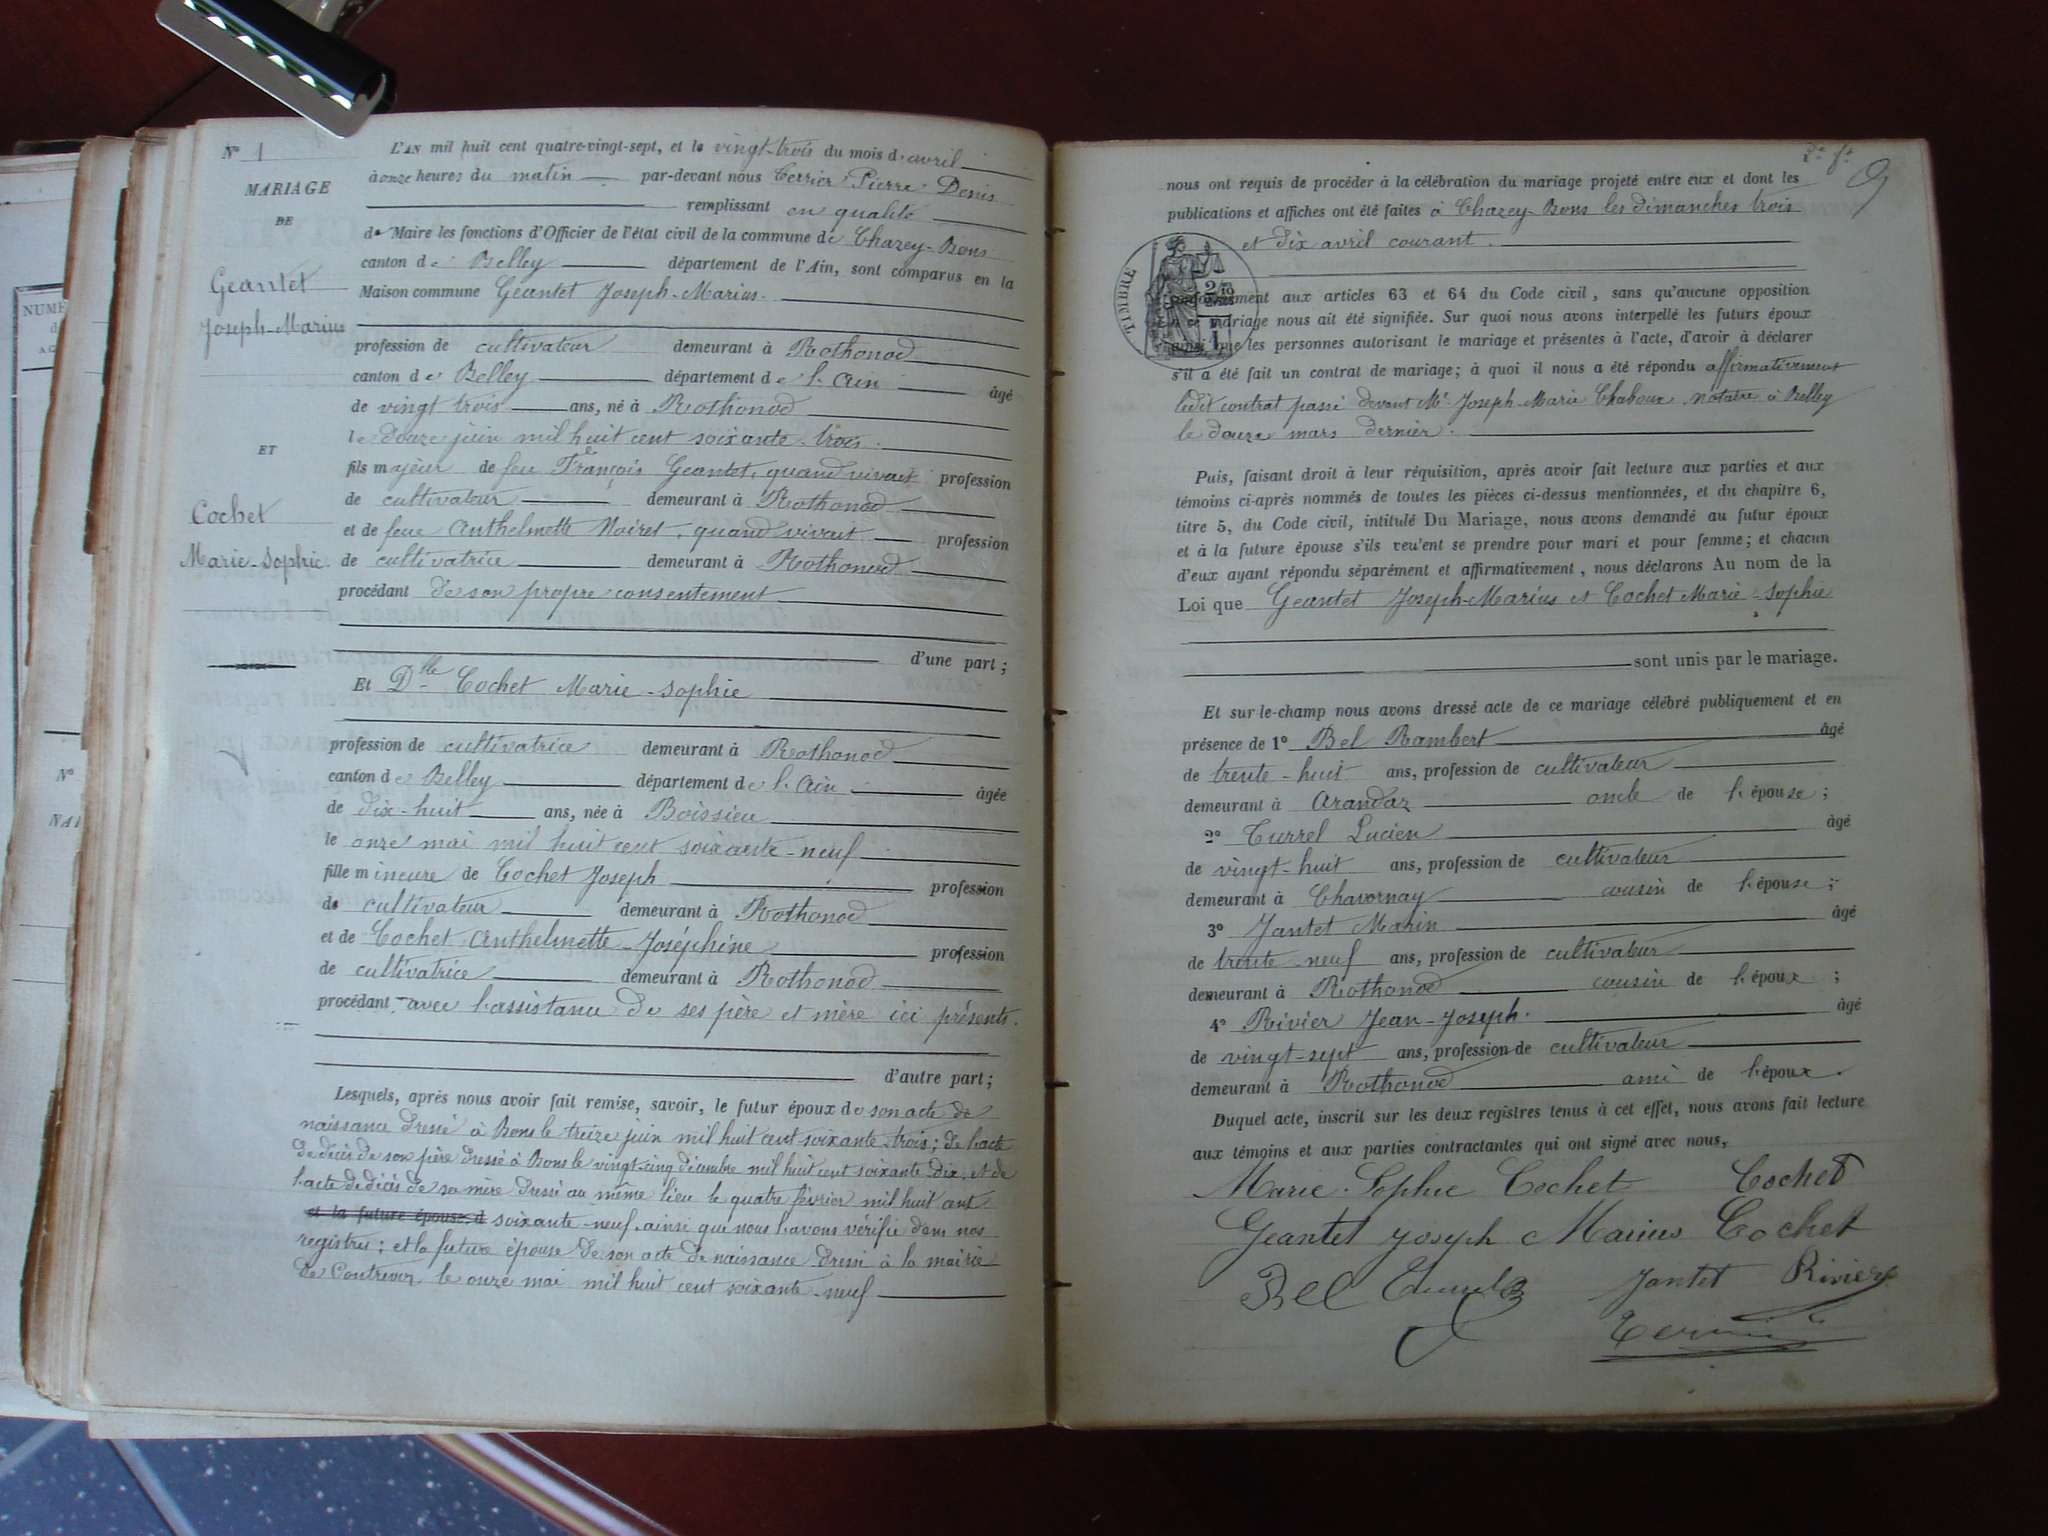 N° 1
MARIAGE
DE
Geantet
Joseph-Marius
ET
Cochet
Marie-Sophie
L'AN mil huit cent quatre-vingt-sept, et le vingt-trois du mois d'avril
à onze heures du matin par-devant nous Terrier Pierre Denis
remplissant en qualité
de Maire les fonctions d'Officier de l'état civil de la commune de Chazey-Bons
canton de Belley département de l'Ain, sont comparus en la
Maison commune Geantet Joseph-Marius
profession de cultivateur demeurant à Rothonod
canton de Belley département de l'Ain âgé
de vingt trois ans, né à Rothonod
le douze juin mil huit cent soixante-trois
fils majeur de feu François Geantet, quand vivait profession
de cultivateur demeurant à Rothonod
et de feue Anthelmette Noiret, quand vivait profession
de cultivatrice demeurant à Rothonod
procédant de son propre consentement
d'une part ;
Et Dlle Cochet Marie-Sophie
profession de cultivatrice demeurant à Rothonod
canton de Belley département de l'Ain âgée
de dix-huit ans, née à Boissieu
le onze mai mil huit cent soixante-neuf
fille mineure de Cochet Joseph profession
de cultivateur demeurant à Rothonod
et de Cochet Anthelmette-Joséphine profession
de cultivatrice demeurant à Rothonod
procédant avec l'assistance de ses père et mère ici présents.
d'autre part ;
Lesquels, après nous avoir fait remise, savoir, le futur époux de son acte de
naissance dressé à Bons le treize juin mil huit cent soixante-trois ; de l'acte
de décès de son père dressé à Bons le vingt-cinq décembre mil huit cent soixante dix, et de
l'acte de décès de sa mère dressé au même lieu le quatre février mil huit cent
et la future épouse d soixante-neuf, ainsi que nous l'avons vérifié dans nos
registres ; et la future épouse de son acte de naissance dressé à la mairie
de Contrevoz le onze mai mil huit cent soixante-neuf
nous ont requis de procéder à la célébration du mariage projeté entre eux et dont les
publications et affiches ont été faites à Chazey-Bons les dimanches trois
et dix avril courant.
TIMBRE
aux articles 63 et 64 du Code civil, sans qu'aucune opposition
à ce mariage nous ait été signifiée. Sur quoi nous avons interpellé les futurs époux
ainsi que les personnes autorisant le mariage et présentes à l'acte, d'avoir à déclarer
s'il a été fait un contrat de mariage ; à quoi il nous a été répondu affirmativement
ledit contrat passé devant Me Joseph-Marie Chaboux notaire à Belley
le douze mars dernier.
Puis, faisant droit à leur réquisition, après avoir fait lecture aux parties et aux
témoins ci-après nommés de toutes les pièces ci-dessus mentionnées, et du chapitre 6,
titre 5, du Code civil, intitulé Du Mariage, nous avons demandé au futur époux
et à la future épouse s'ils veu'ent se prendre pour mari et pour femme ; et chacun
d'eux ayant répondu séparément et affirmativement, nous déclarons Au nom de la
Loi que Geantet Joseph-Marius et Cochet Marie-Sophie
sont unis par le mariage.
Et sur-le-champ nous avons dressé acte de ce mariage célébré publiquement et en
présence de 1° Bel Rambert âgé
de trente-huit ans, profession de cultivateur
demeurant à Arandaz oncle de l'épouse ;
2° Turrel Lucien âgé
de vingt-huit ans, profession de cultivateur
demeurant à Chavornay cousin de l'épouse ;
3° Jantet Marin âgé
de trente-neuf ans, profession de cultivateur
demeurant à Rothonod cousin de l'époux ;
4° Rivier Jean-Joseph. âgé
de vingt-sept ans, profession de cultivateur
demeurant à Rothonod ami de l'époux.
Duquel acte, inscrit sur les deux registres tenus à cet effet, nous avons fait lecture
aux témoins et aux parties contractantes qui ont signé avec nous,
Marie-Sophie Cochet Cochet
Geantet Joseph Marius Cochet
Bel Jantet Rivier